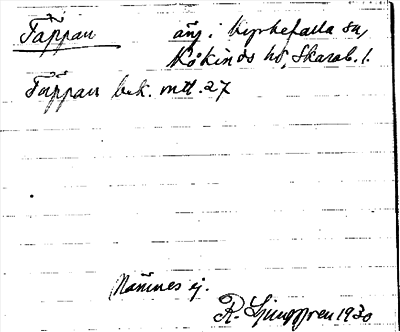 Täppan äng i Kyrkefalla sn,
Kåkinds hd, Skarab. l.
Täppan bek. mtl. 27
Namnes ej.
R. Ljunggren 1930